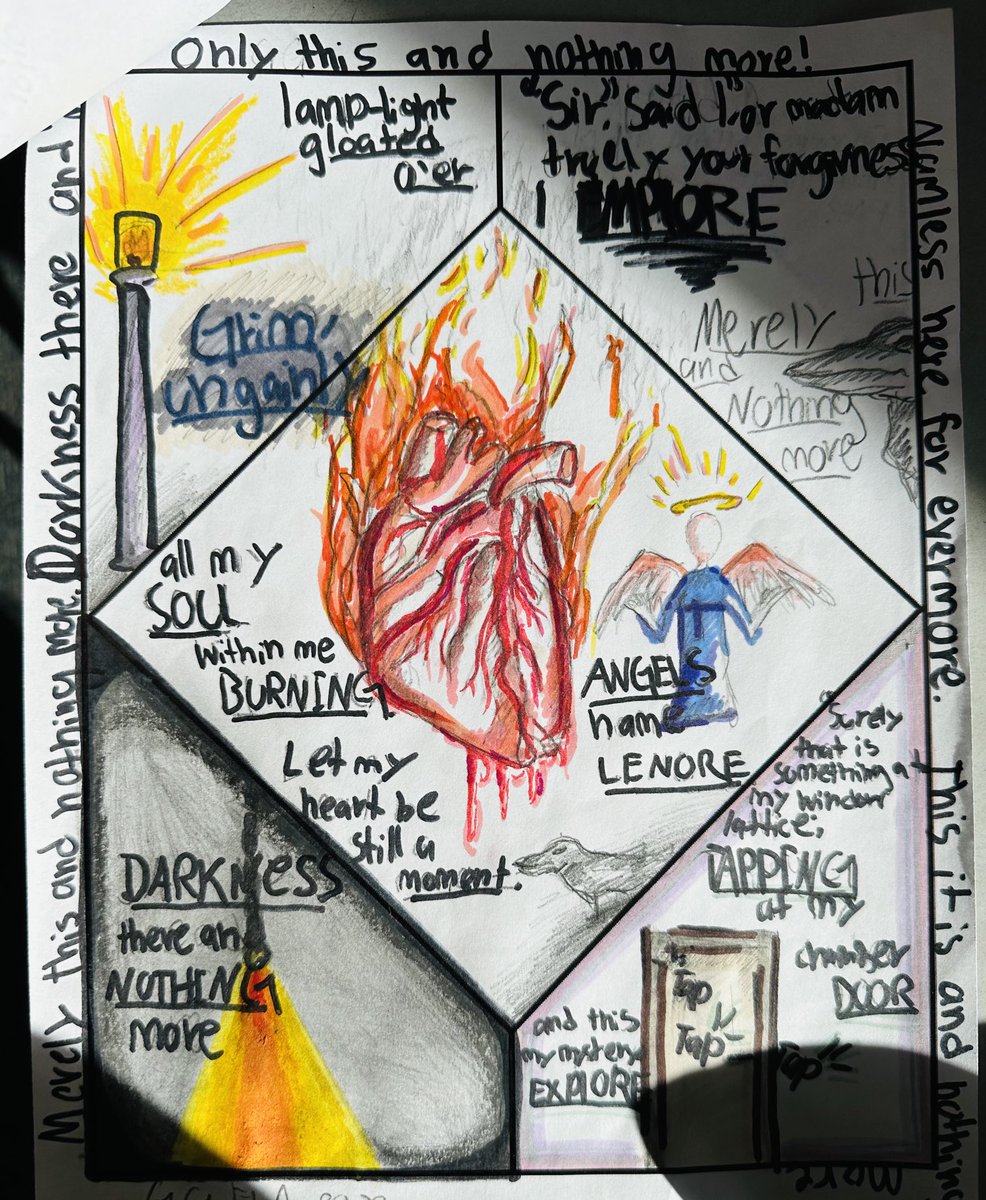 Only this and nothing more!
lamp-light
gloated
o'er
"Sir," said I, "or madam
truely your forgivness
I IMPLORE
Grim,
ungainly
this
Merely
and
Nothing
more
all my
SOUL
within me
BURNING
ANGELS
name
LENORE
Let my
heart be
still a
moment.
DARKNESS
there and
NOTHING
more
"Surely
that is
something at
my window
lattice;
TAPPING
at my
chamber
DOOR
and this
my mystery
EXPLORE
Tap
Tap
Tap
Merely this and nothing more. Darkness there and
Namless here for evermore. This it is and nothing
more